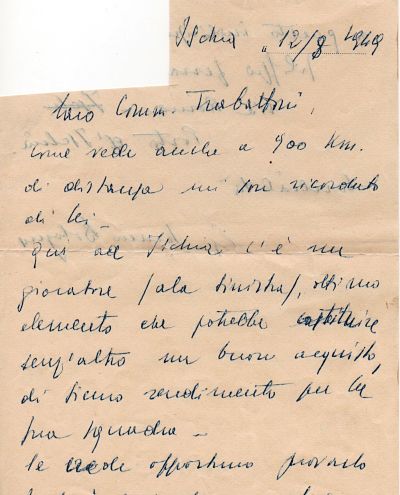 Ischia, 12/8 1949
Caro Comm. Trabattoni,
come vede anche a 900 Km.
di distanza mi son ricordato
di Lei.
Qui ad Ischia c'è un
giocatore (ala sinistra), ottimo
elemento che potrebbe costituire
senz'altro un buon acquisto,
di sicuro rendimento per la
sua squadra –
Se crede opportuno provarlo